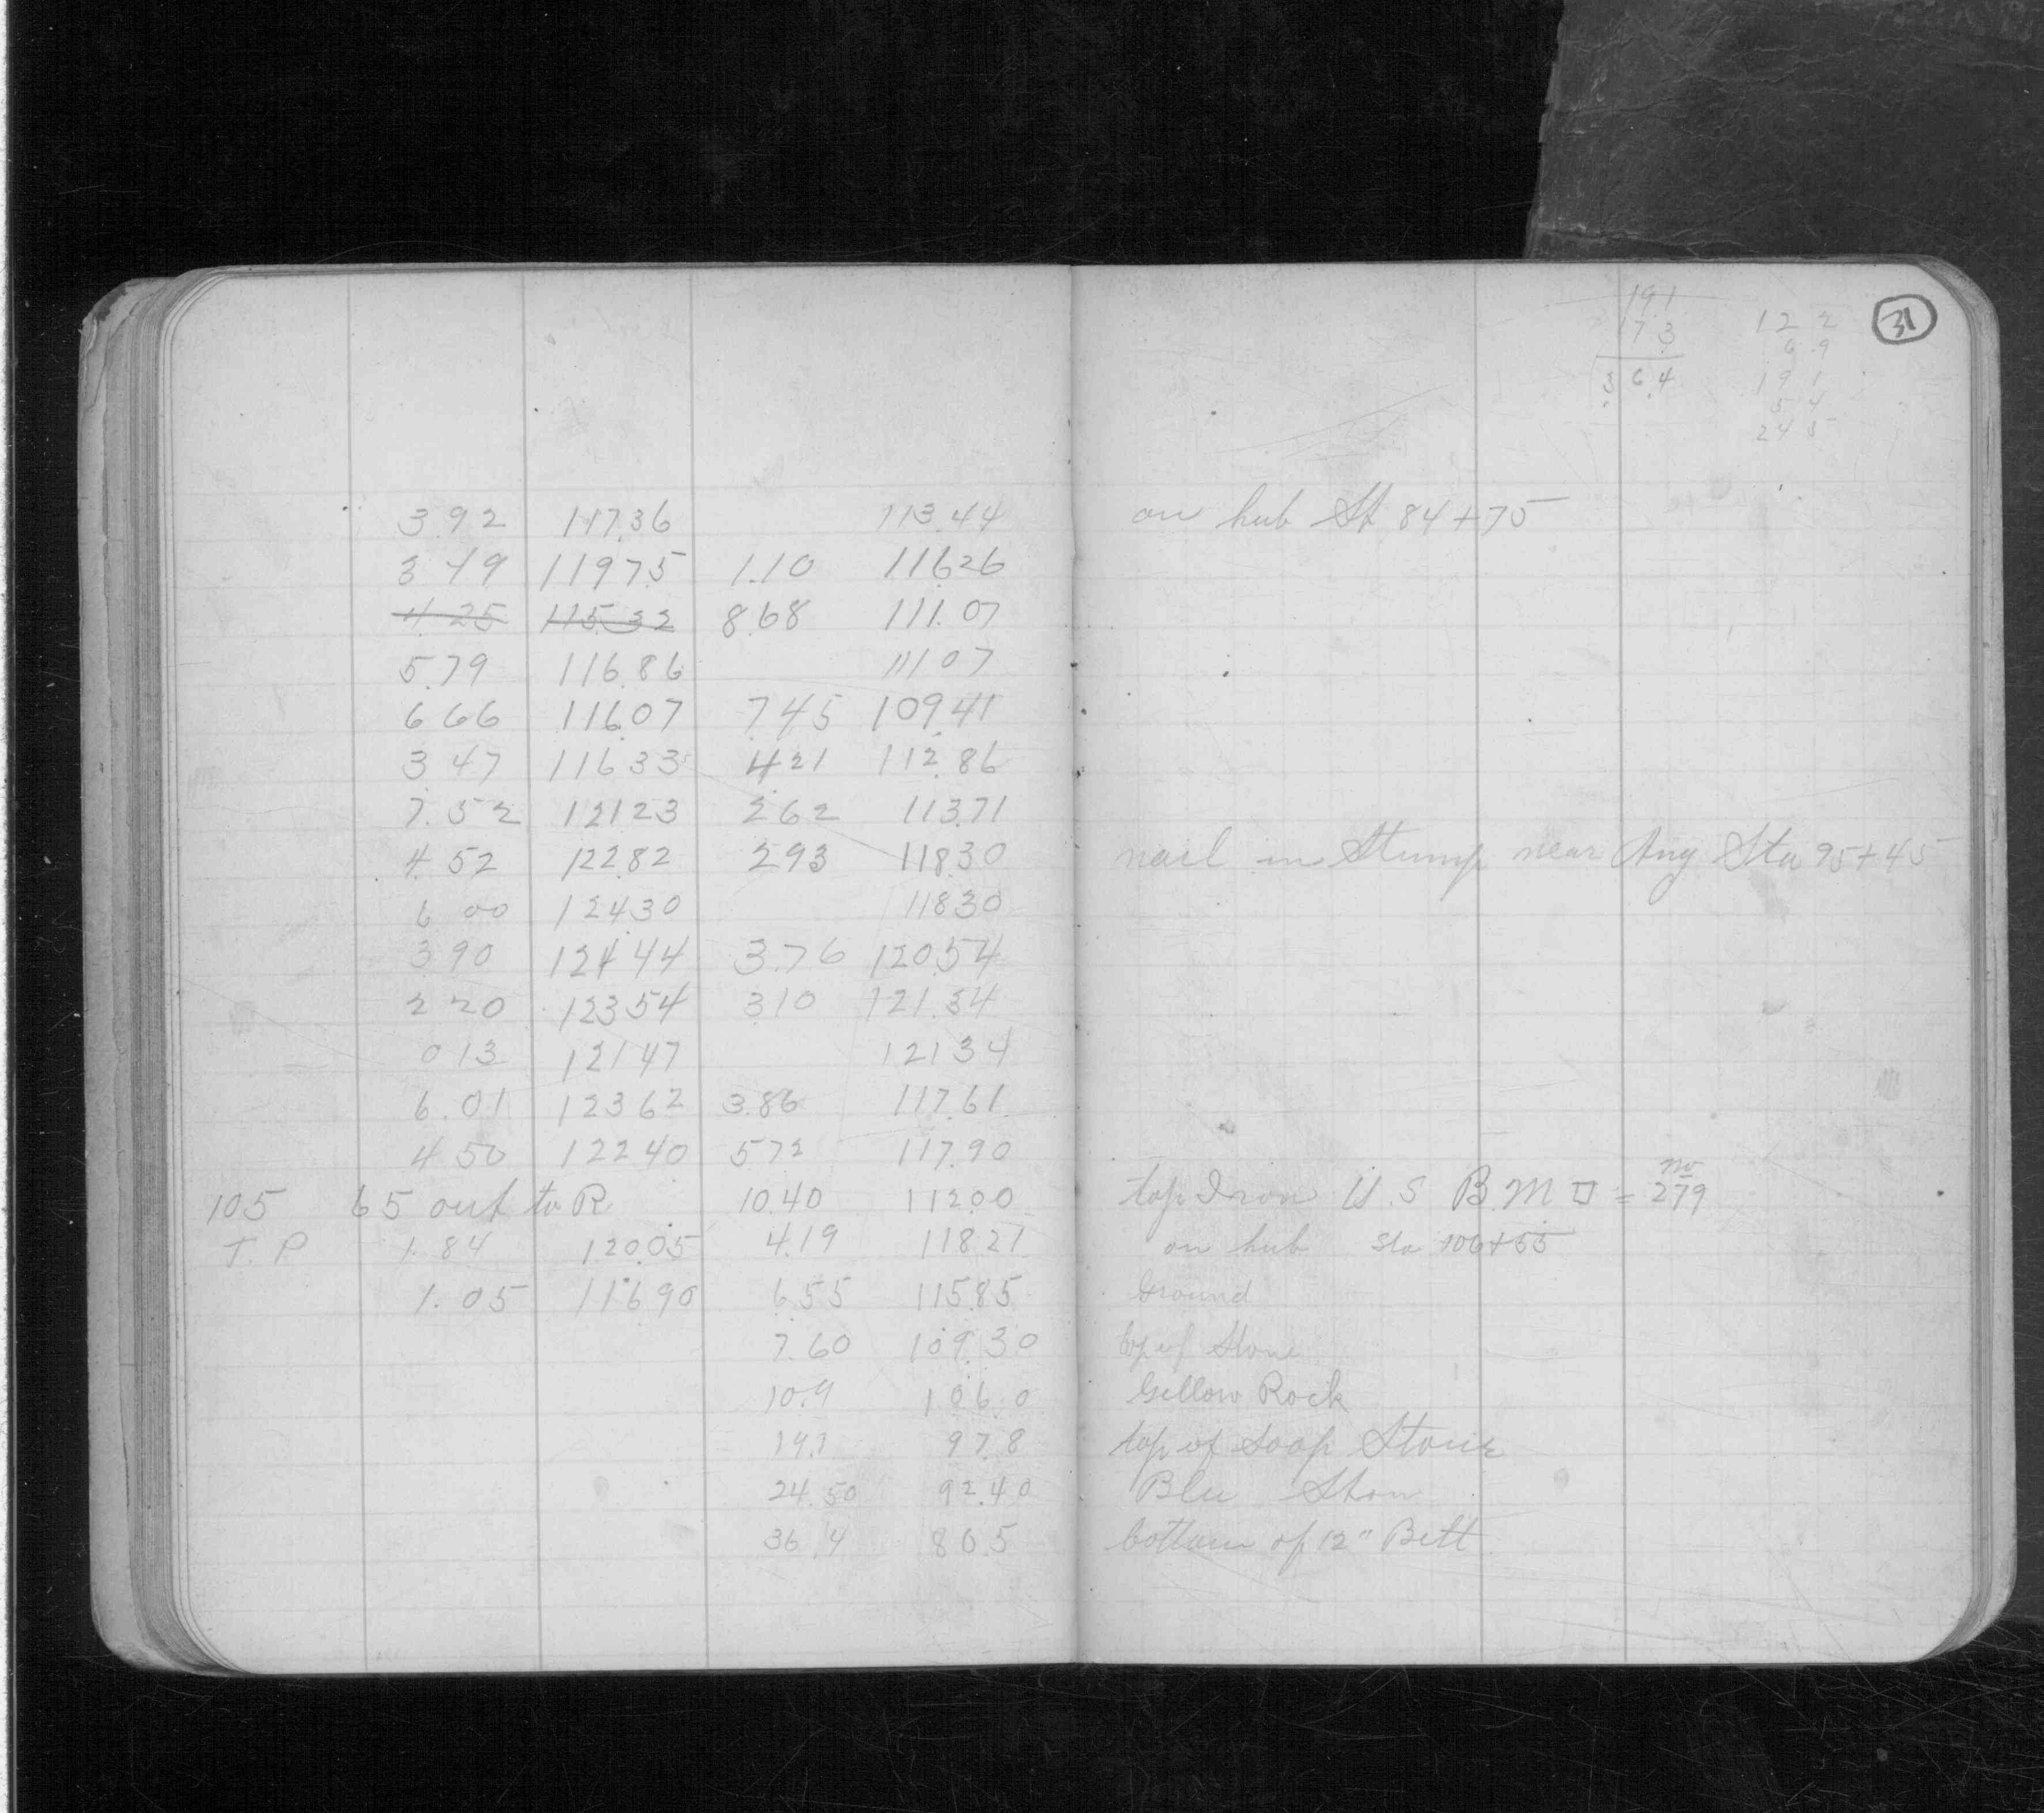 3 92 117.36 113.44
3 49 119 75 1.10 116.26
4.25 115.32 8.68 111.07
5.79 116.86 111 07
6 66 116.07 7.45 109.41
3 47 116 33 4 21 112.86
7.52 121 23 2 62 113.71
4.52 122.82 2 93 118.30
6 00 124.30 118 30
3 90 124 44 3.76 120.54
2 20 123 54 3 10 121.34
0 13 121 47 121 34
6.01 123 62 3.86 117.61
4 50 122 40 5 72 117.90
105 65 out to R. 10.40 112.00
T. P 1.84 120.05 4.19 118.21
1.05 116.90 6.55 115.85
7.60 109.30
10.9 106.0
19.1 97.8
24.50 92.40
36.4 80.5
31
191
173
3 6.4
12 2
6.9
19 1
5 4
24 5
on hub St 84+75
nail in Stump near Ang Sta 95+45
top Iron U.S B.M □ = no 279
on hub Sta 106+55
Ground
top of Stone
Yellow Rock
top of Soap Stone
Blu Ston
bottom of 12" Bitt